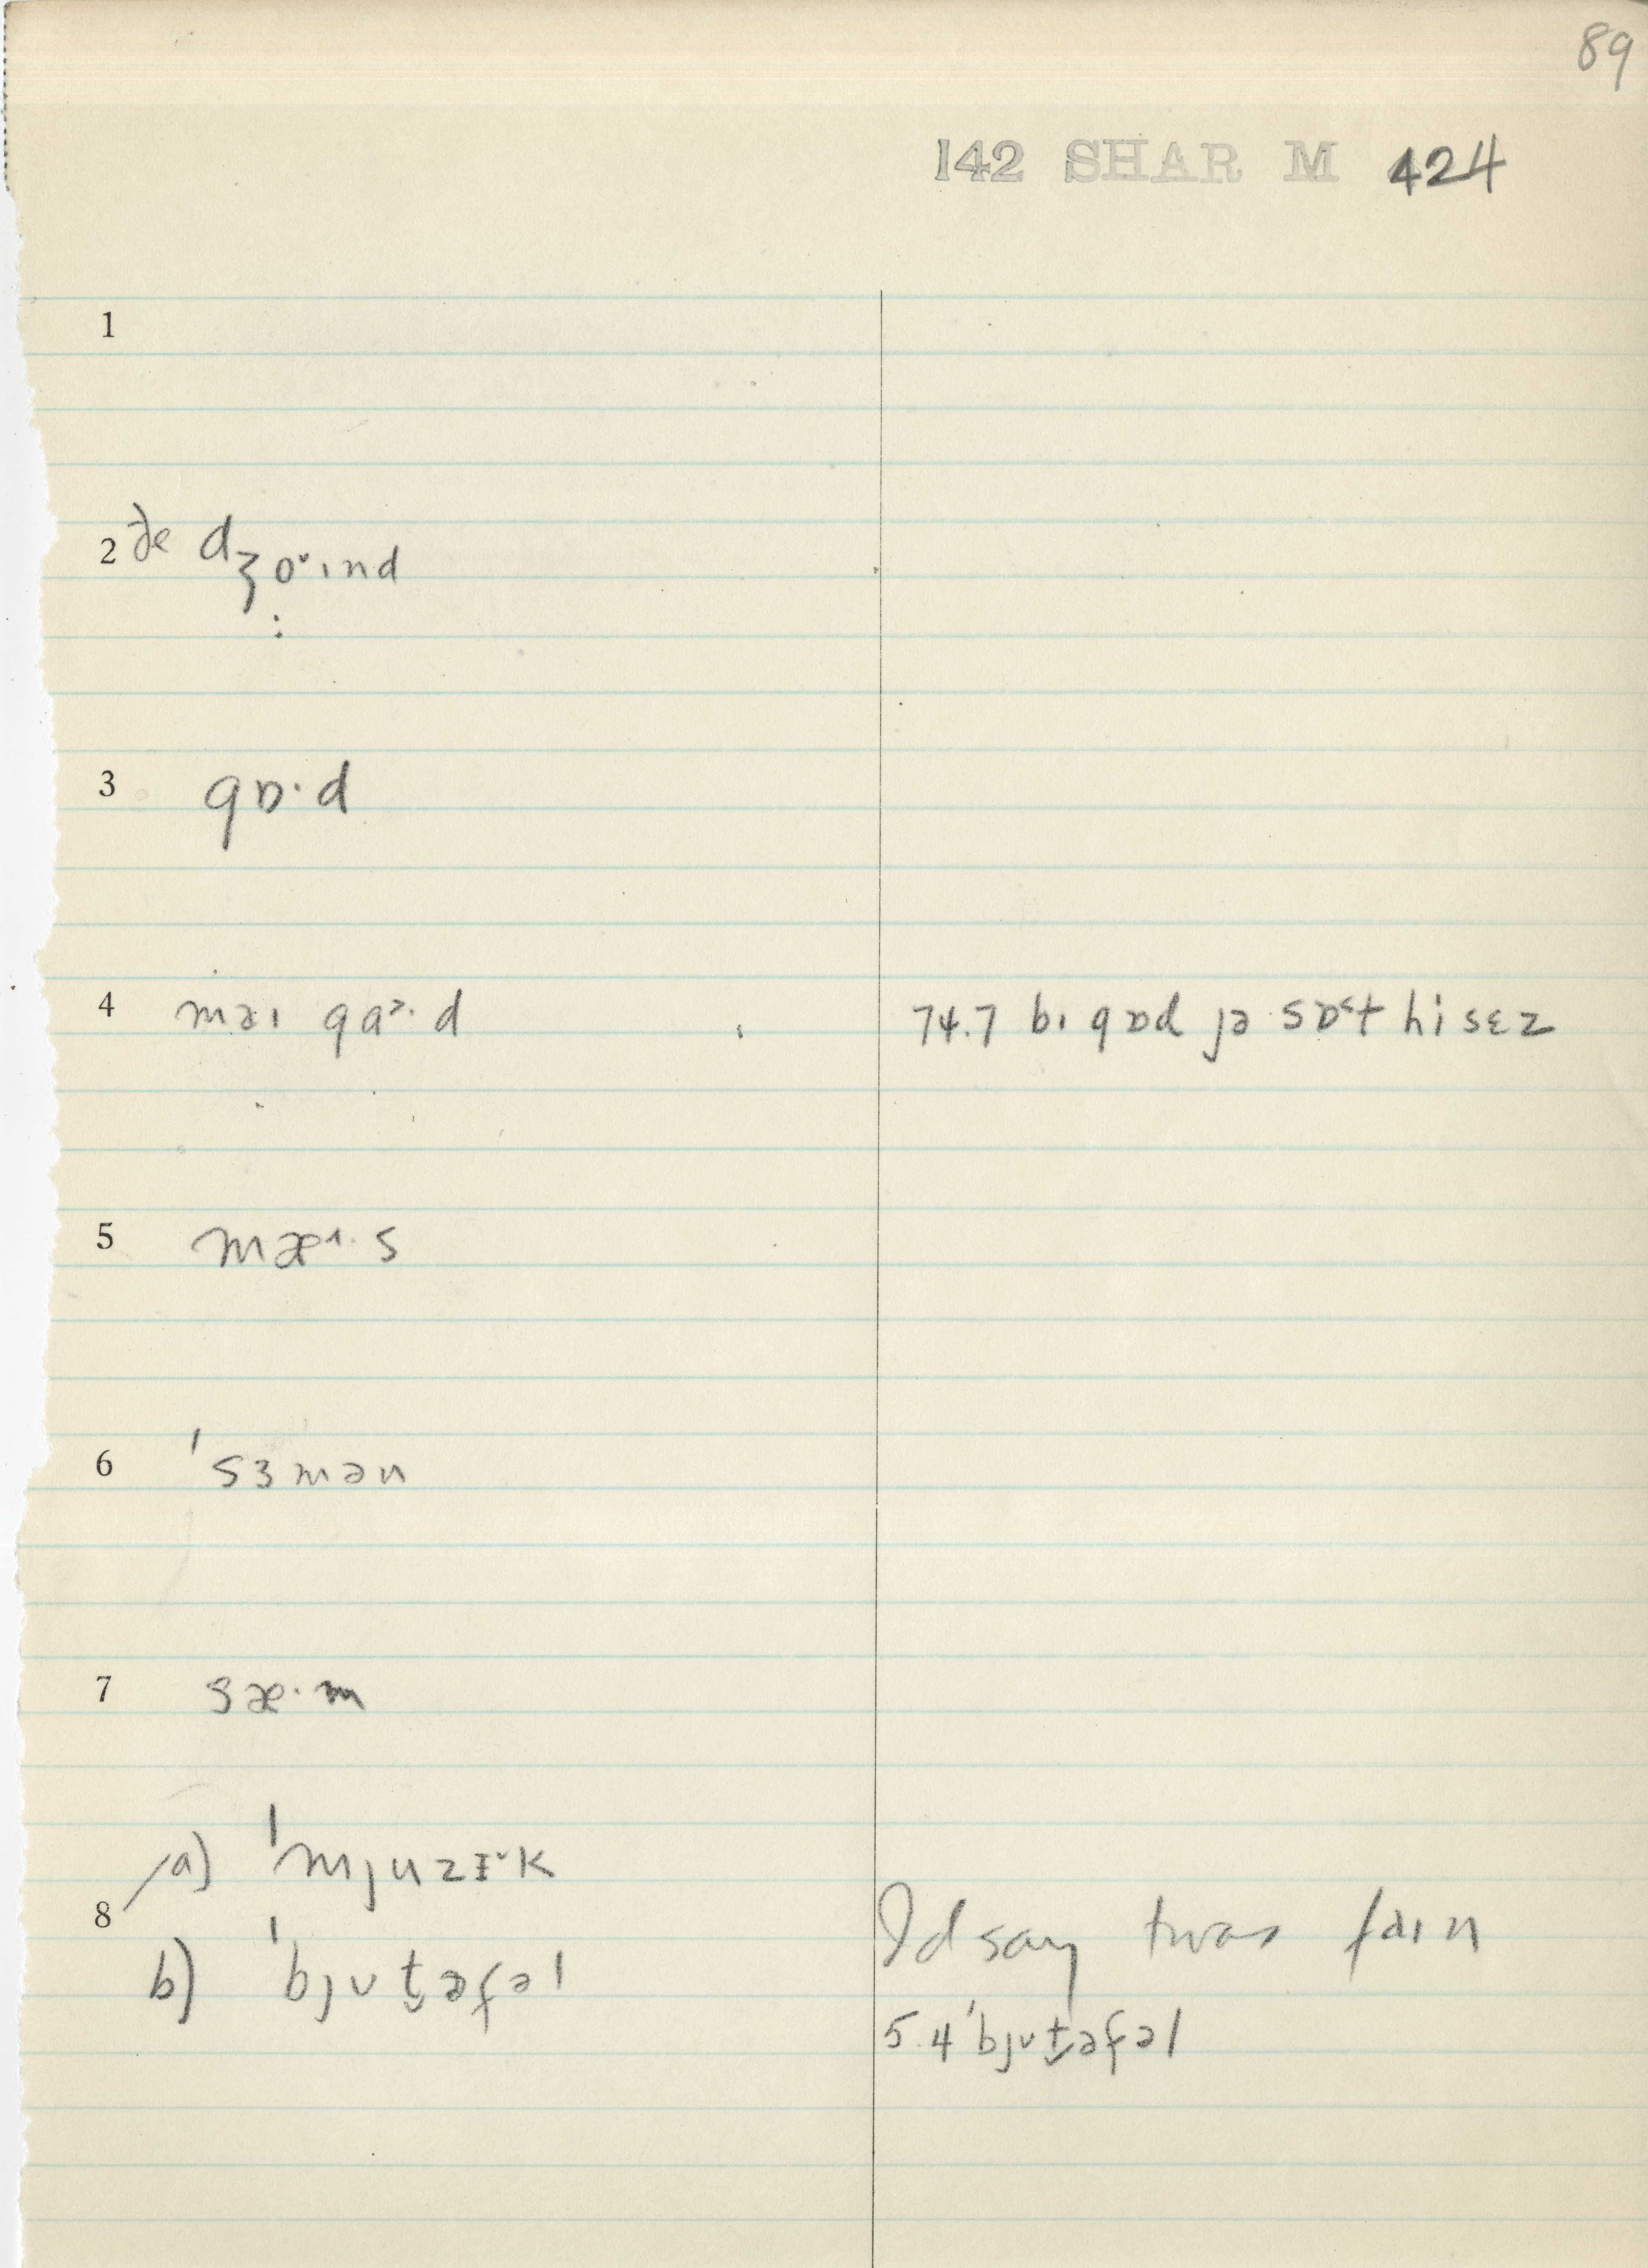 89
142 SHAR M 424
1
2 ðe dʒɔ˅ɪnd
:
3 gɒ·d
4 məɪ gɑ˃·d
74.7 bɪ gɒd jə sɒ˂t hi sɛz
5 mæ˄·s
6 ˈsɜmən
7 sæ·m
8 a) ˈmjuzɪ˅k
b) ˈbjʊt̬əfəl
I'd say twas faɪn
5.4 ˈbjʊt̬əfəl